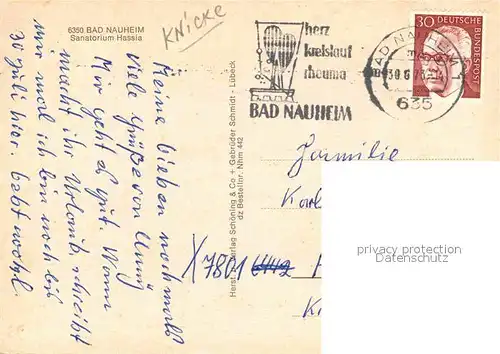 6350 BAD NAUHEIM
Sanatorium Hassia
KNICKE
herz
kreislauf
rheuma
BAD NAUHEIM
BAD NAUHEIM 1
635
30
DEUTSCHE
BUNDESPOST
Meine lieben nochmals
viele Grüße von
Mir geht es gut. Wann
macht ihr Urlaub, schreibt
mir mal ich bin noch bis
30 Juli hier.
Familie
7801
Herst. u. Verlag Schöning & Co + Gebrüder Schmidt - Lübeck
dz Bestellnr. Nhm 442
privacy protection
Datenschutz